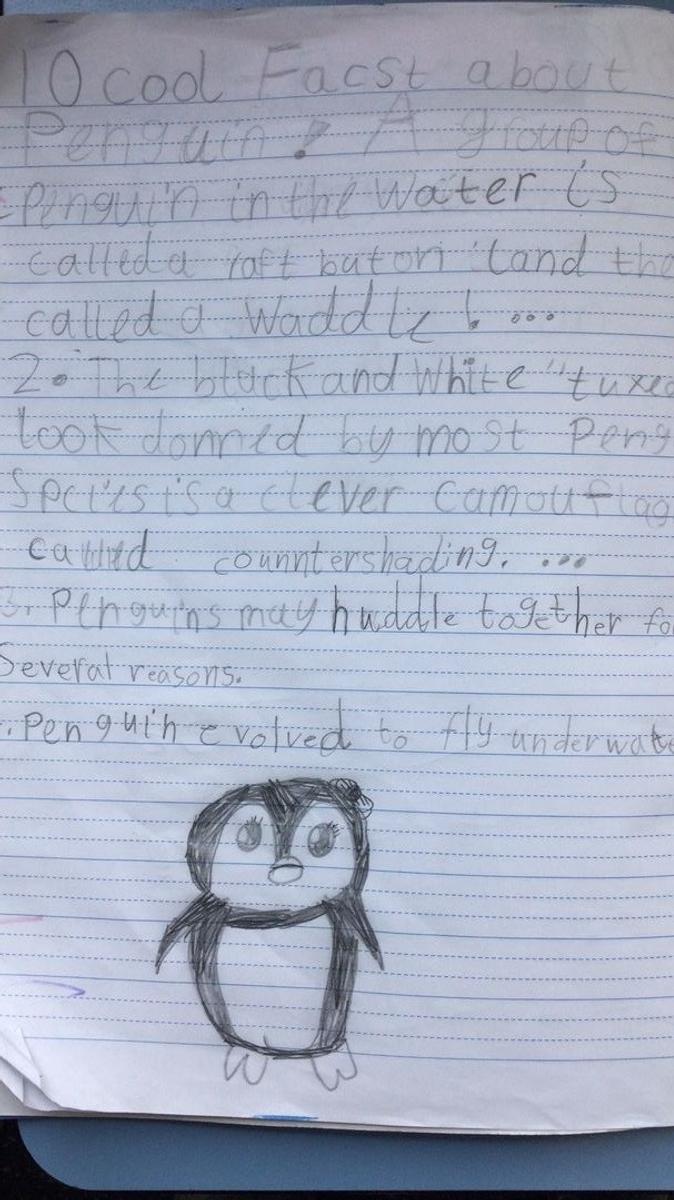 10 cool Facst about
Penguin! A group of
Penguin in the Water is
called a raft but on land the
called a Waddle! ...
2. The black and White "tuxed
look donned by most Peng
Species is a clever Camouflag
called counntershading. ...
3. Penguins may huddle together fo
Several reasons.
. Penguin evolved to fly underwate